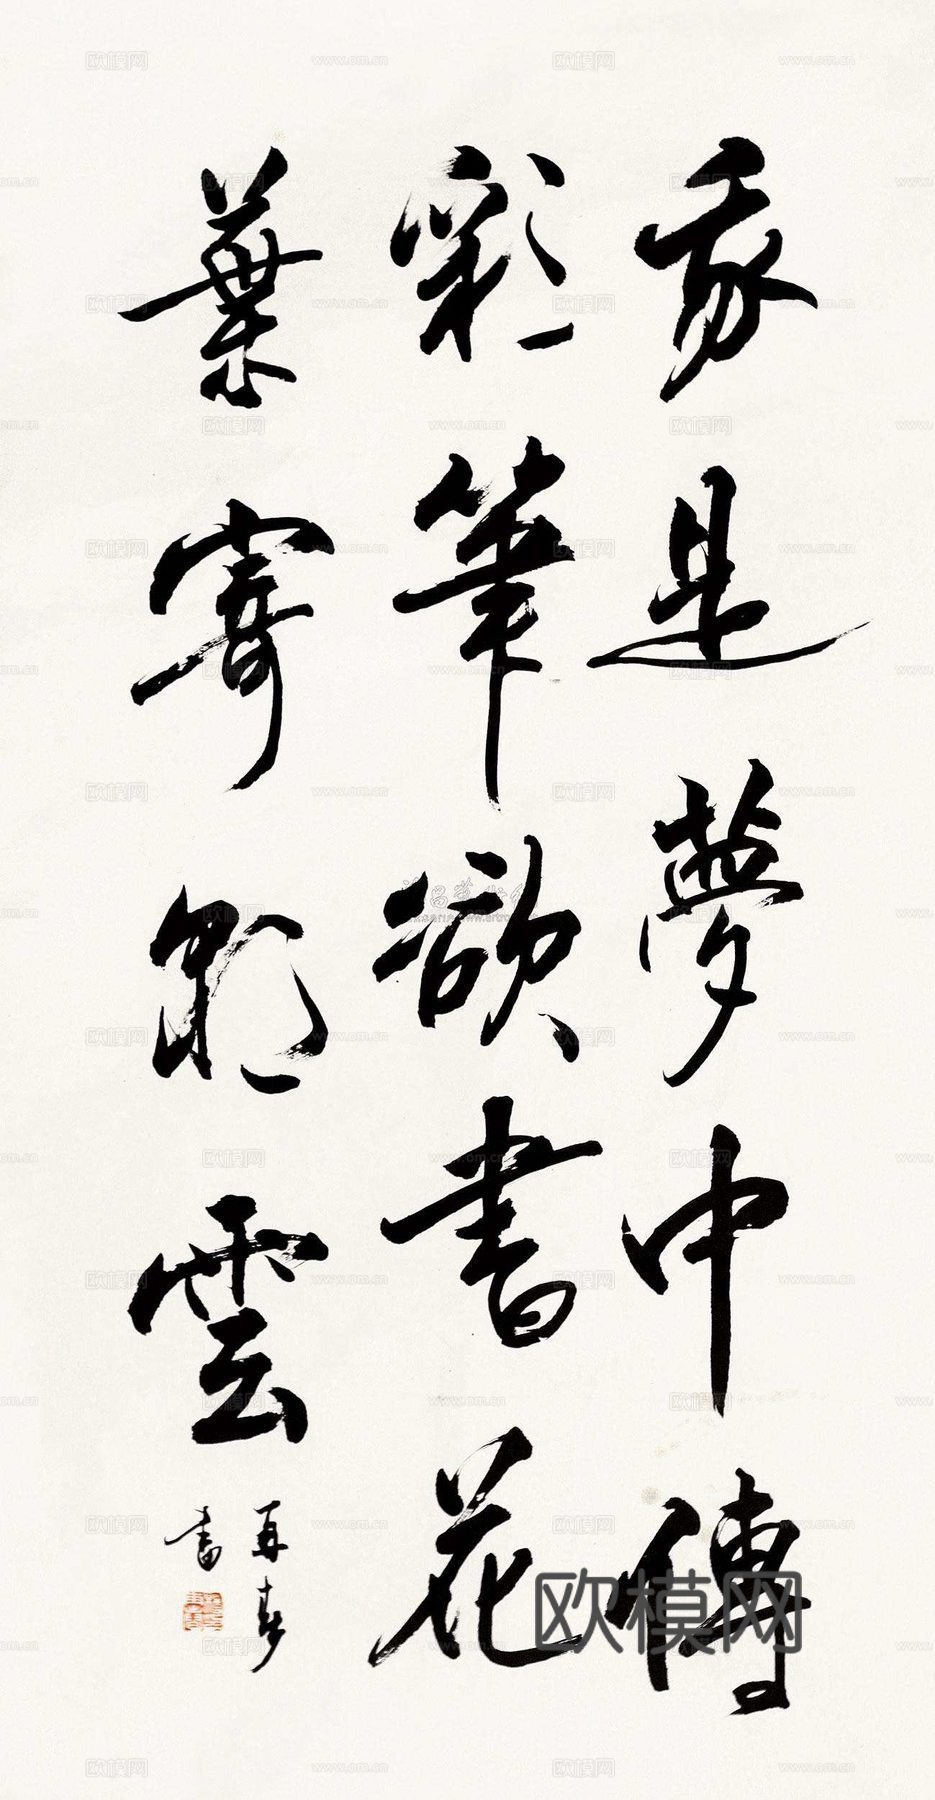 我是夢中傳
彩筆欲書花
葉寄朝雲
書
欧模网
www.om.cn